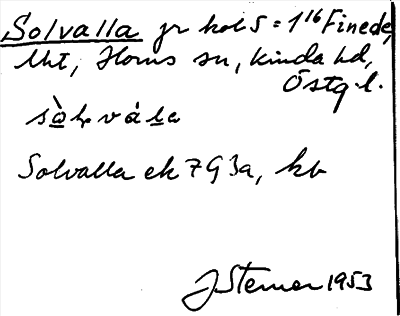 Solvalla jr kol 5 = 1¹⁶ Finede,
Uht, Horns sn, Kinda hd,
Östg l.
Solvalla ek 7G 3a, kb
J Sterner 1953